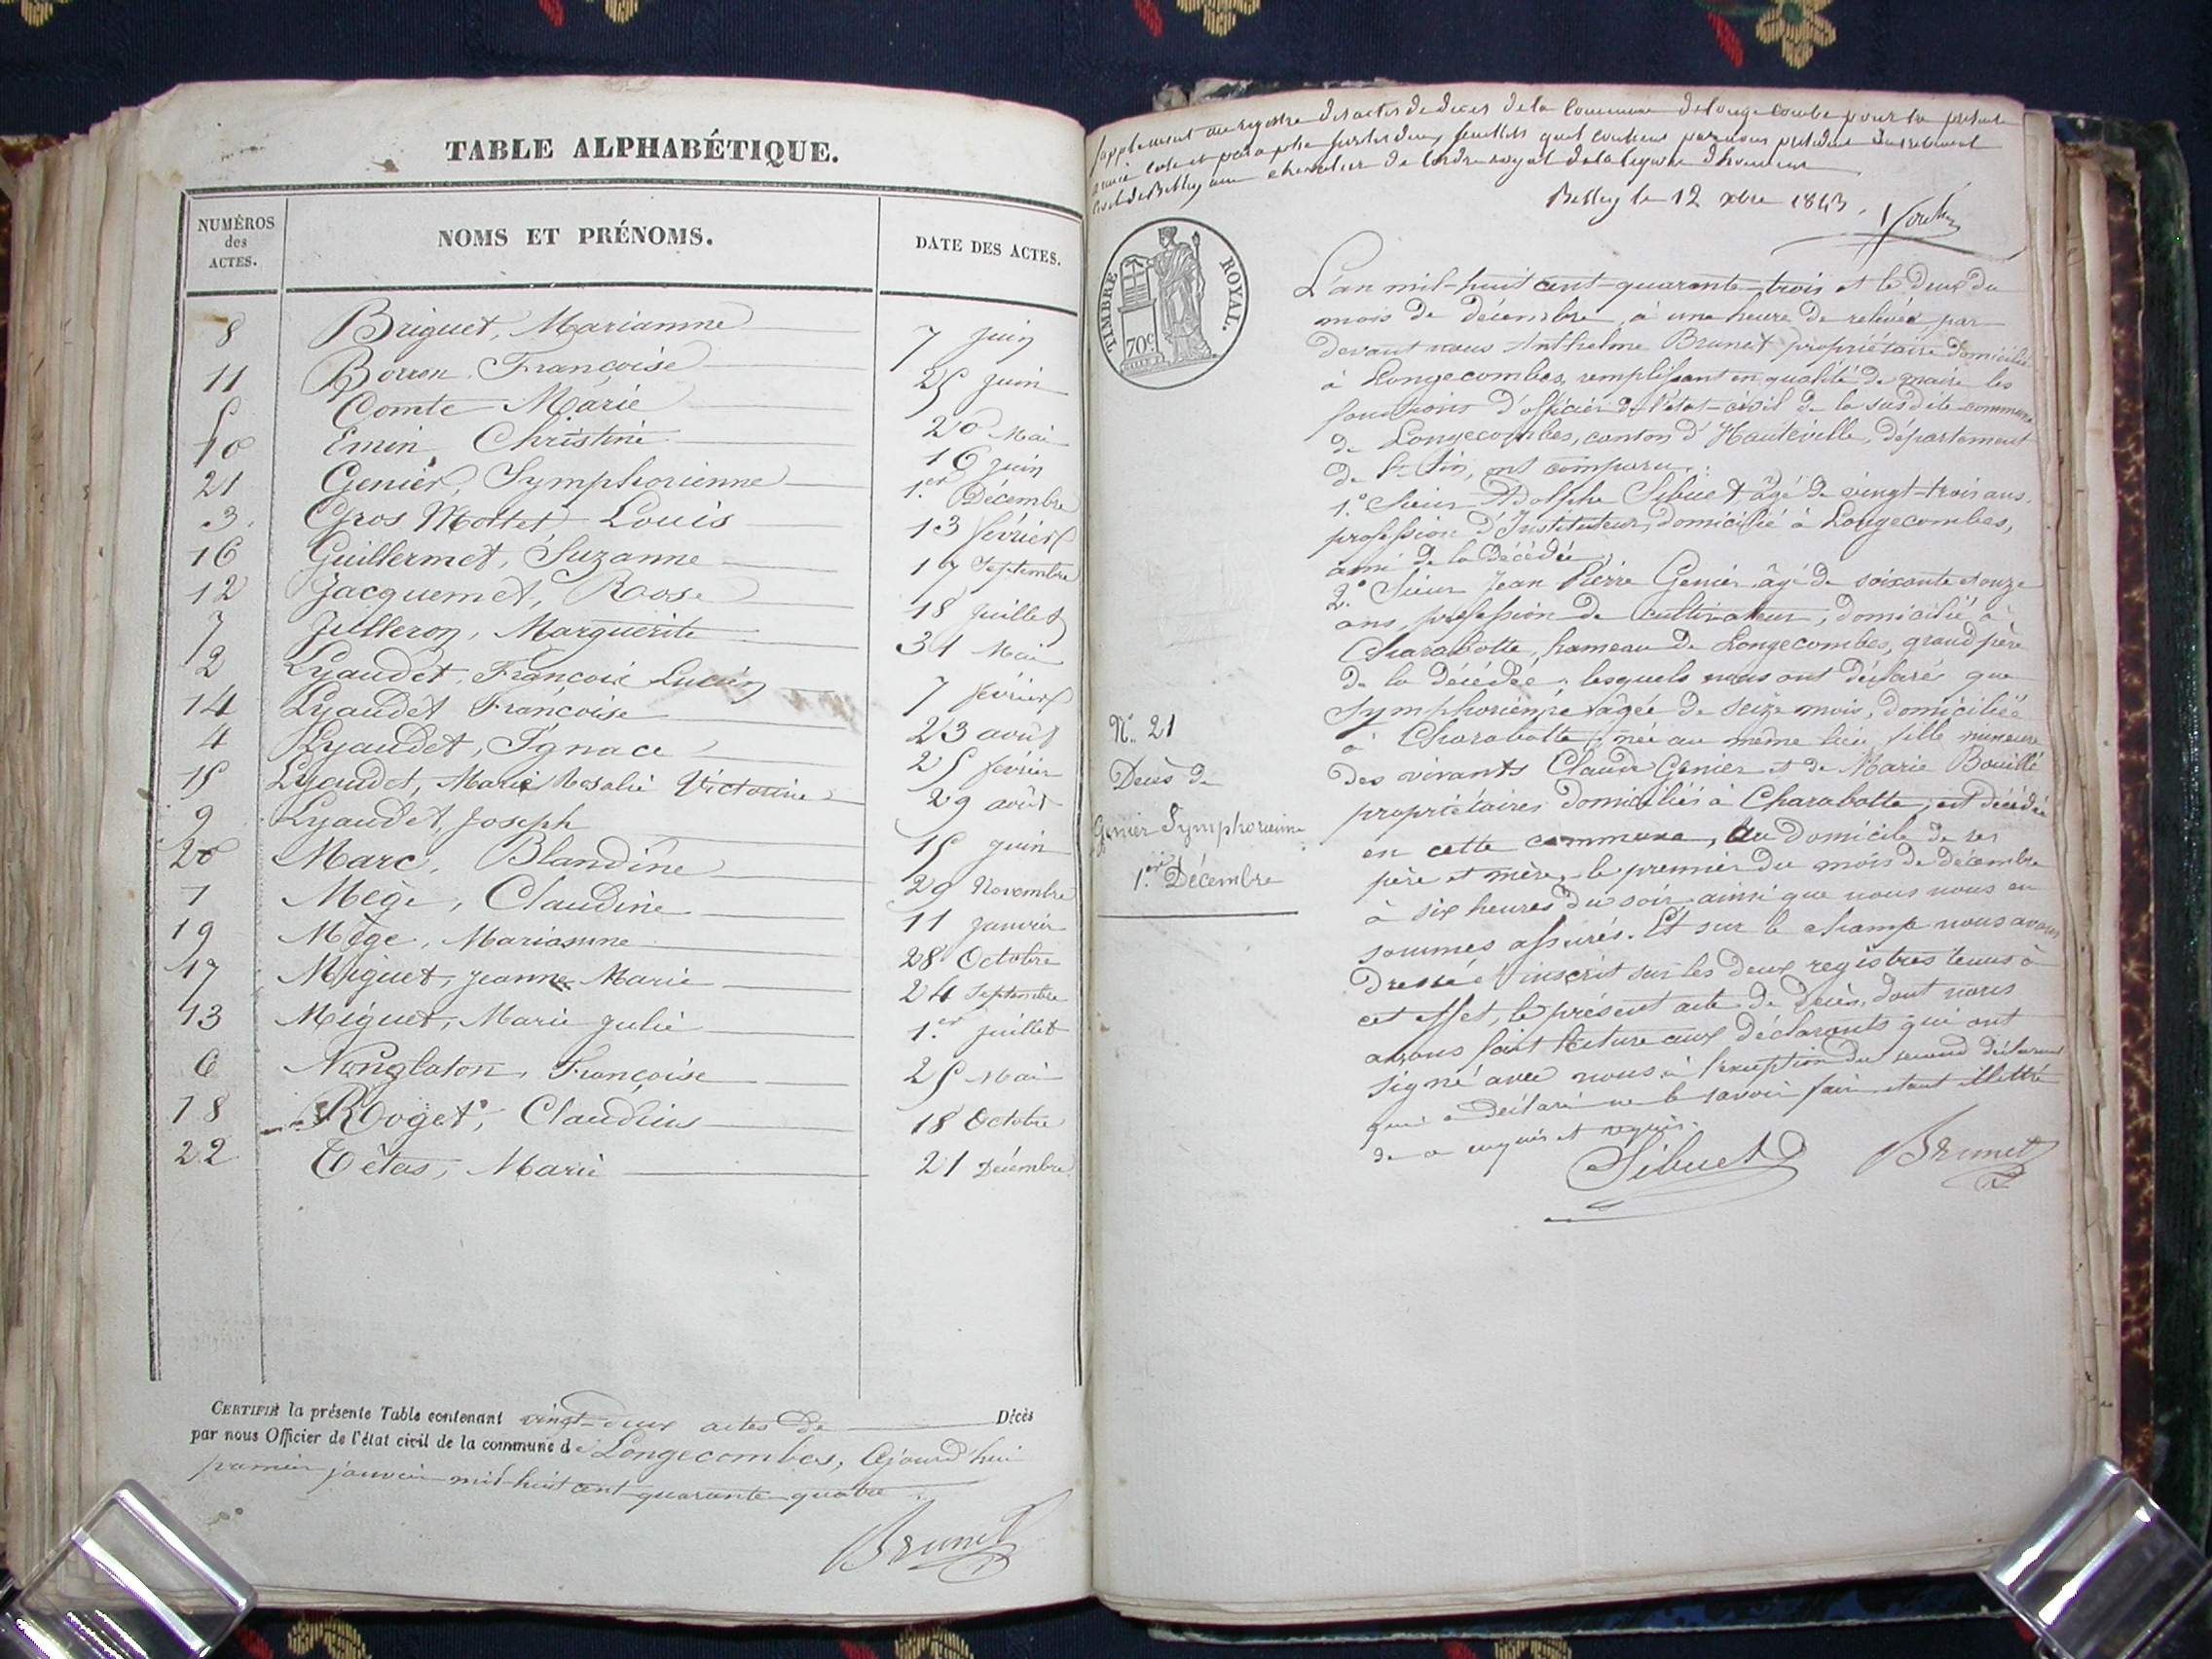 TABLE ALPHABÉTIQUE.
NUMÉROS des ACTES.
NOMS ET PRÉNOMS.
DATE DES ACTES.
8 Briguet, Marianne 7 Juin
11 Borron Françoise 25 Juin
5 Comte Marie 20 Mai
10 Emin Christine 16 Juin
21 Genier, Symphorienne 1.er Décembre
3. Gros Mottet Louis 13 février
16 Guillermet, Suzanne 17 Septembre
12 Jacquemet, Rose 18 Juillet
7 Juilleron, Marguerite 31 Mai
2 Lyaudet, François Lucien 7 février
14 Lyaudet Françoise 23 août
4 Lyaudet, Ignace 25 février
15 Lyaudet, Marie Rosalie Victorine 29 août
9 Lyaudet, Joseph 15 Juin
20 Marc, Blandine 29 Novembre
1 Mège, Claudine 11 Janvier
19 Mège, Marianne 28 Octobre
17 Miguet, Jeanne Marie 24 Septembre
13 Miguet, Marie Julie 1.er Juillet
6 Nanglaton, Françoise 25 Mai
18 Roget, Claudius 18 Octobre
22 Têtas, Marie 21 Décembre
CERTIFIÉ la présente Table contenant vingt-deux actes de Décès
par nous Officier de l'état civil de la commune de Longecombes, Cejourd'hui
premier janvier mil-huit cent quarante quatre.
Brunet
supplement au registre des actes de deces de la Commune de longecombe pour la presente
année coté et paraphé sur les deux feuillets quil contient par nous president du tribunal
civil de Belley chevalier de l'ordre royal de la legion d'honneur
Belley le 12 xbre 1843.
TIMBRE ROYAL.
70c.
L'an mil-huit cent-quarante-trois et le deux du
mois de décembre, à une heure de relevée, par
devant nous Anthelme Brunet propriétaire domicilié
à Longecombes, remplissant en qualité de maire les
fonctions d'officier de l'état-civil de la susdite commune
de Longecombes, canton d'Hauteville, département
de l'Ain, ont comparu:
1.º Sieur Adolphe Sibuet âgé de vingt-trois ans,
profession d'Instituteur, domicilié à Longecombes,
ami de la décédée;
2.º Sieur Jean Pierre Genier âgé de soixante et onze
ans, profession de cultivateur, domicilié à
Charabotte, hameau de Longecombes, grand père
de la décédée; lesquels nous ont déclaré que
Symphorienne âgée de seize mois, domiciliée
à Charabotte, née au même lieu, fille mineure
des vivants Claude Genier et de Marie Bouillé
propriétaires domiciliés à Charabotte, est décédée
en cette commune, au domicile de ses
père et mère, le premier du mois de décembre
à six heures du soir ainsi que nous nous en
sommes assurés. Et sur le champ nous avons
dressé et inscrit sur les deux registres tenus à
cet effet, le présent acte de décès, dont nous
avons fait lecture aux déclarants qui ont
signé avec nous à l'exception du second déclarant
qui a déclaré ne le savoir faire étant illettré
de ce enquis et requis.
Sibuet Brunet
N.º 21
Décès de
Genier Symphorienne
1.er Décembre